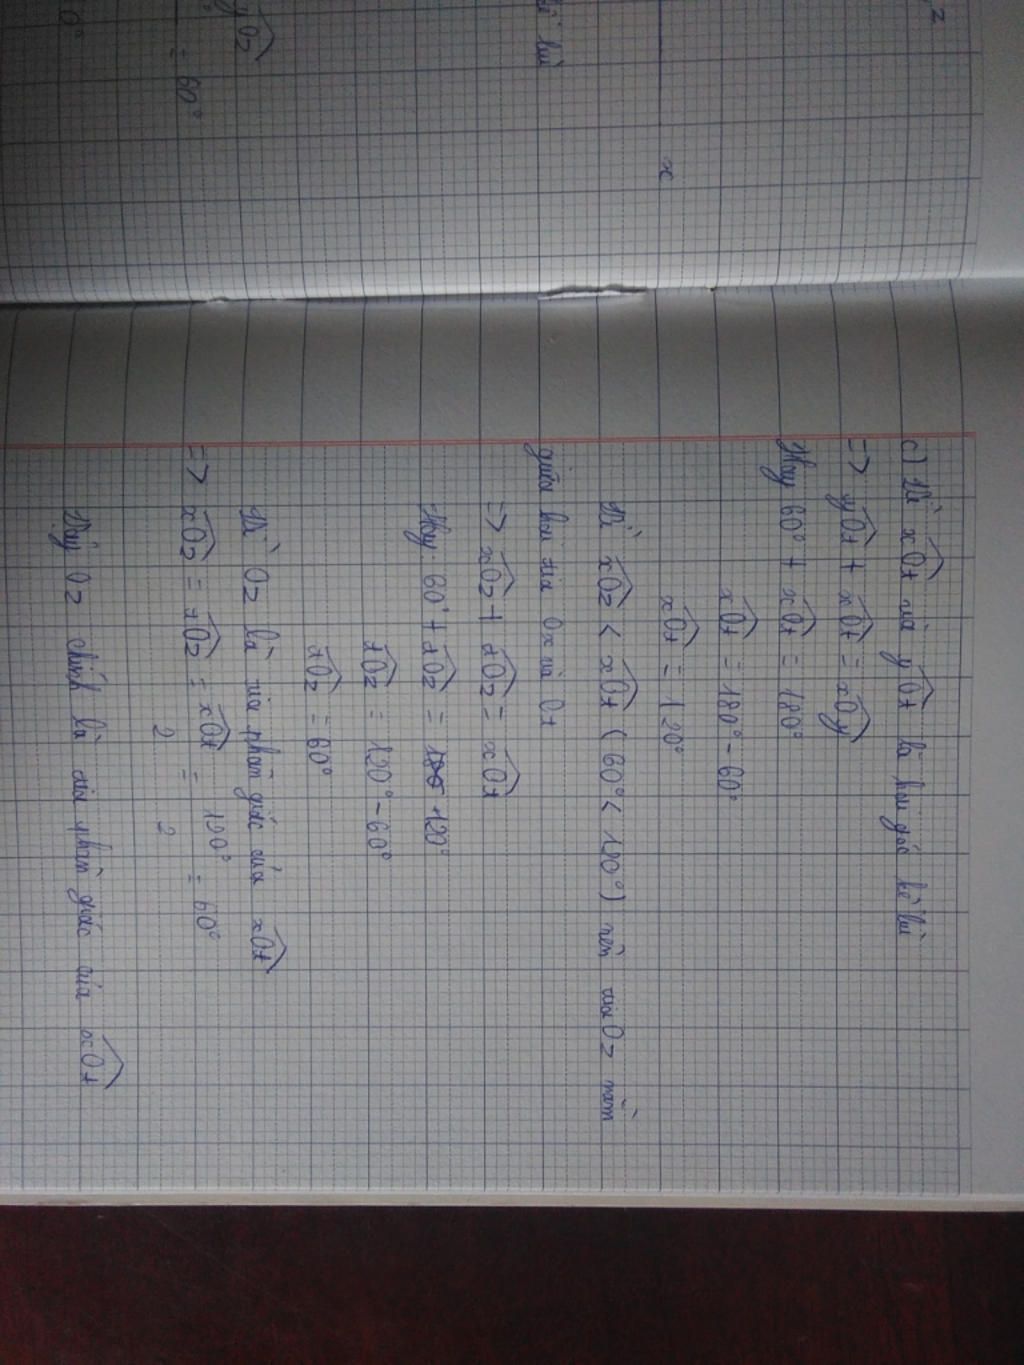 z
x
yOz
= 60°
c) Vì xOt và yOt là hai góc kề bù
=> yOt + xOt = xOy
Hay 60° + xOt = 180°
xOt = 180° - 60°
xOt = 120°
Vì xOz < xOt ( 60° < 120° ) nên tia Oz nằm
giữa hai tia Ox và Ot
=> xOz + tOz = xOt
Hay 60° + tOz = 120°
tOz = 120° - 60°
tOz = 60°
Vì Oz là tia phân giác của xOt
=> xOz = tOz = xOt/2 = 120°/2 = 60°
Vậy Oz chính là tia phân giác của xOt